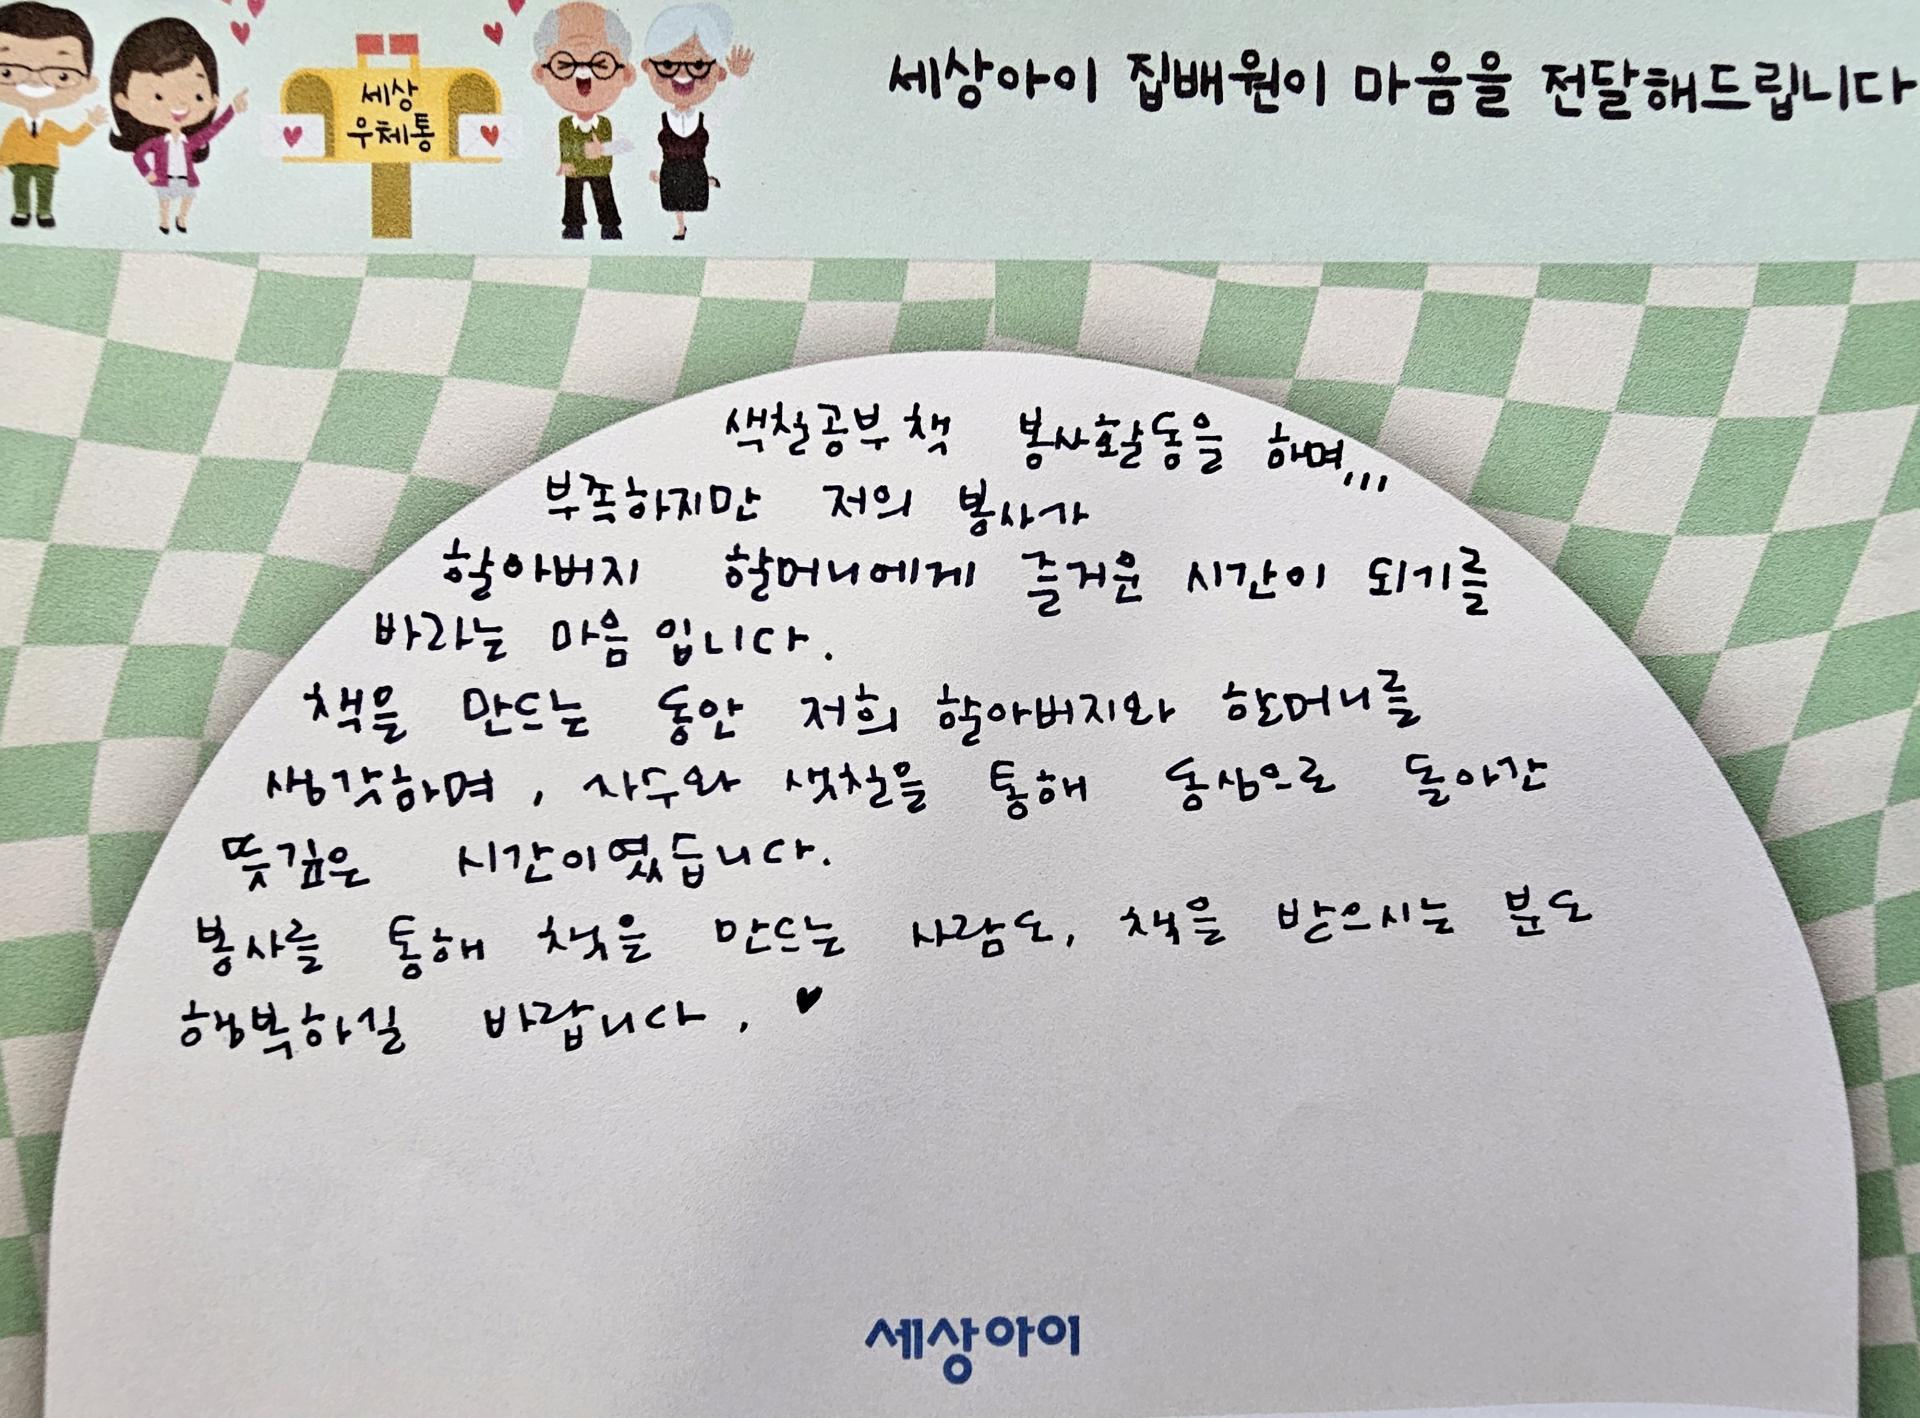 세상
우체통
세상아이 집배원이 마음을 전달해드립니다
색칠공부책 봉사활동을 하며,,,
부족하지만 저의 봉사가
할아버지 할머니에게 즐거운 시간이 되기를
바라는 마음입니다.
책을 만드는 동안 저희 할아버지와 할머니를
생각하며, 자수와 색칠을 통해 동심으로 돌아간
뜻깊은 시간이였듭니다.
봉사를 통해 책을 만드는 사람도, 책을 받으시는 분도
행복하길 바랍니다. ♥
세상아이